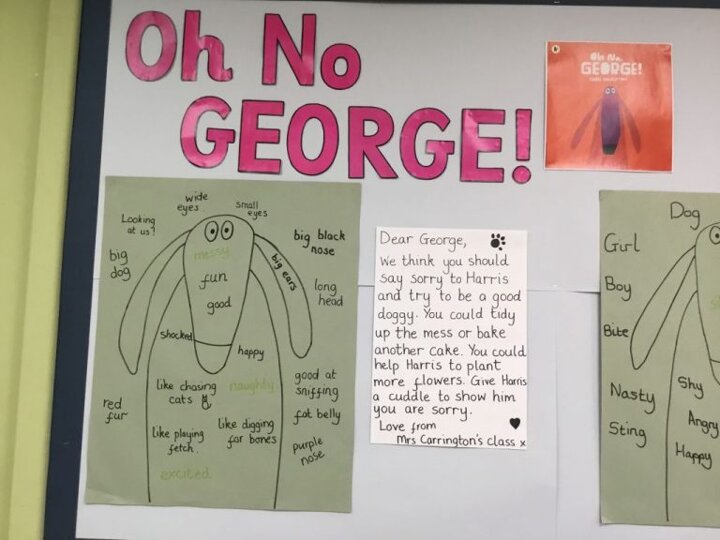 Oh No
GEORGE!
Oh No,
GEORGE!
Looking
at us!
wide
eyes
small
eyes
big black
nose
big
dog
messy
big ears
fun
good
long
head
shocked
happy
red
fur
like chasing
cats
naughty
good at
sniffing
fat belly
like playing
fetch.
like digging
for bones
purple
nose
excited
Dear George,
We think you should
say sorry to Harris
and try to be a good
doggy. You could tidy
up the mess or bake
another cake. You could
help Harris to plant
more flowers. Give Harris
a cuddle to show him
you are sorry.
Love from
Mrs Carrington's class x
Dog
Girl
Boy
Bite
Nasty
Shy
Sting
Angry
Happy